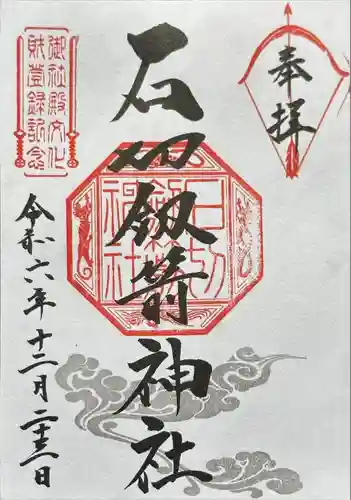 奉拝
石切劔箭神社
石切
劔箭
神社
御社殿文化
財登録記念
令和六年十二月二十三日